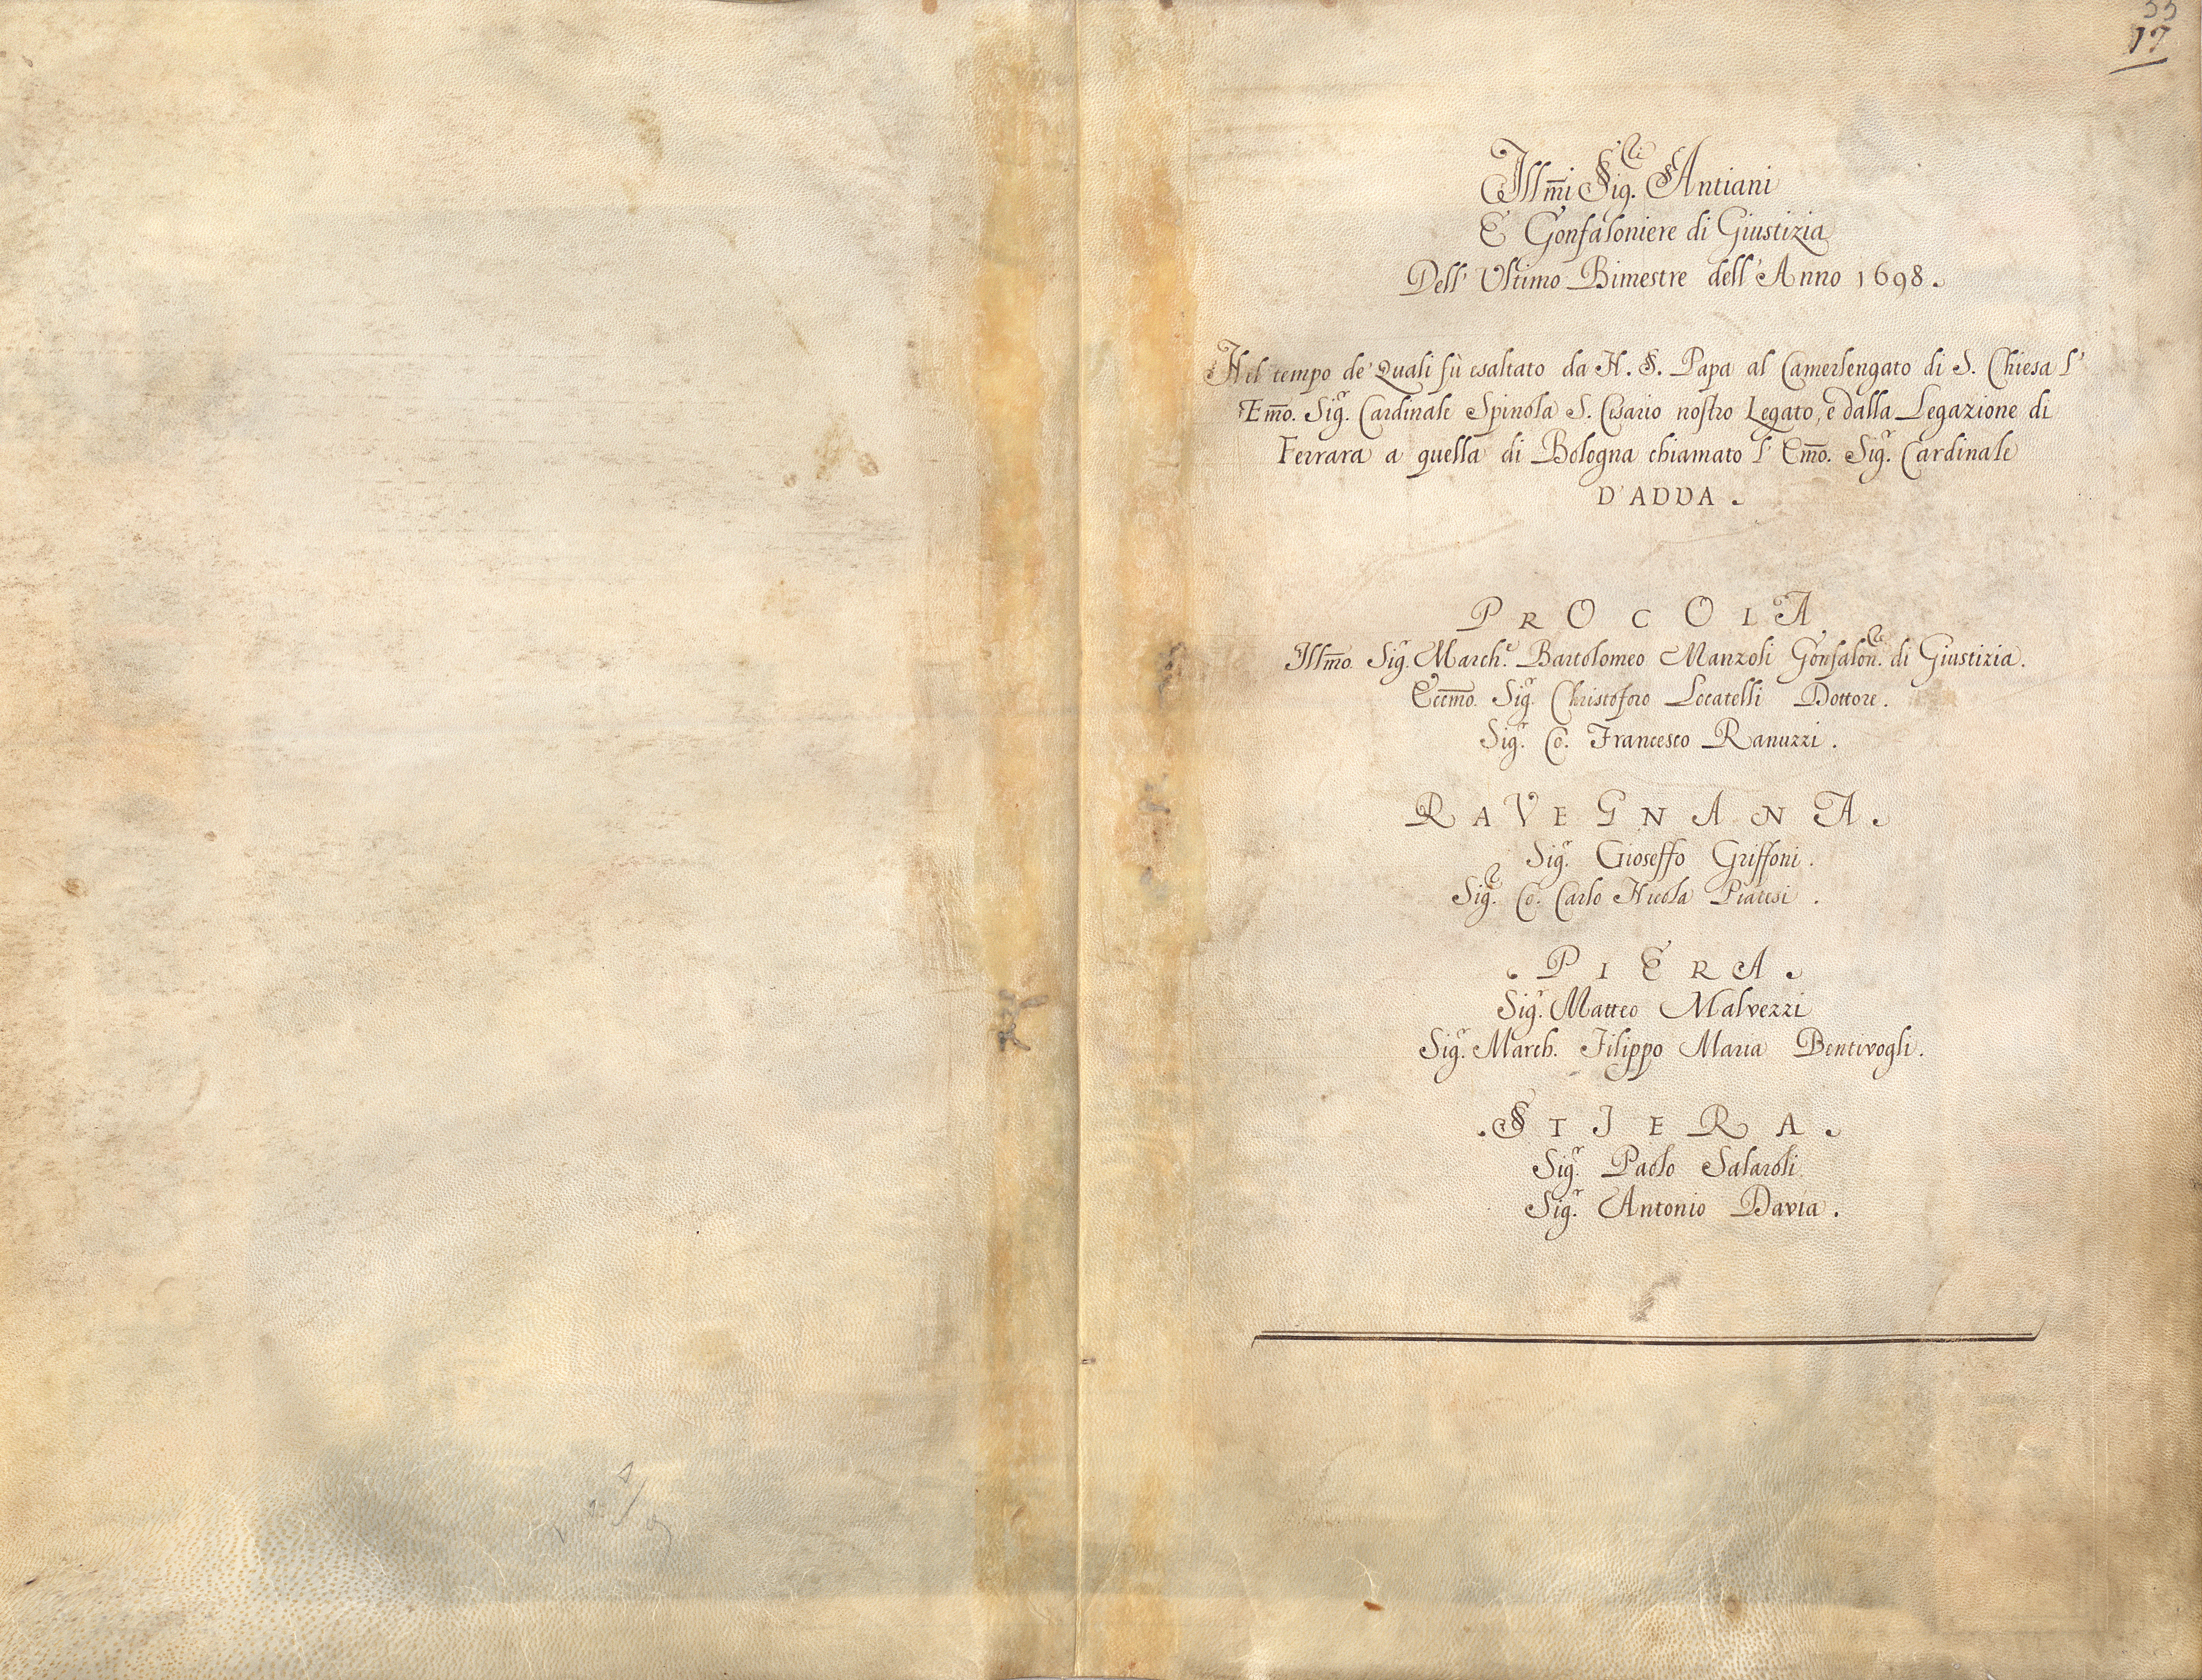 55
17
Ill͞mi Sig.ri Antiani
E Gonfaloniere di Giustizia
Dell' Ultimo Bimestre dell' Anno 1698.
Nel tempo de' Quali fù esaltato da N. S. Papa al Camerlengato di S. Chiesa l'
Em͞o. Sig.r Cardinale Spinola S. Cesario nostro Legato, e dalla Legazione di
Ferrara a quella di Bologna chiamato l' Em͞o. Sig.r Cardinale
D'ADDA.
PROCOLA
Ill͞mo. Sig.r March.e Bartolomeo Manzoli Gonfalon.re di Giustizia.
Ecc͞mo. Sig.r Christoforo Locatelli Dottore.
Sig.r Co. Francesco Ranuzzi.
RAVEGNANA.
Sig.r Gioseffo Griffoni.
Sig.r Co. Carlo Nicola Piatesi.
. PIERA.
Sig.r Matteo Malvezzi
Sig.r March. Filippo Maria Bentivogli.
. STIERA.
Sig.r Paolo Salaroli
Sig.r Antonio Davia.